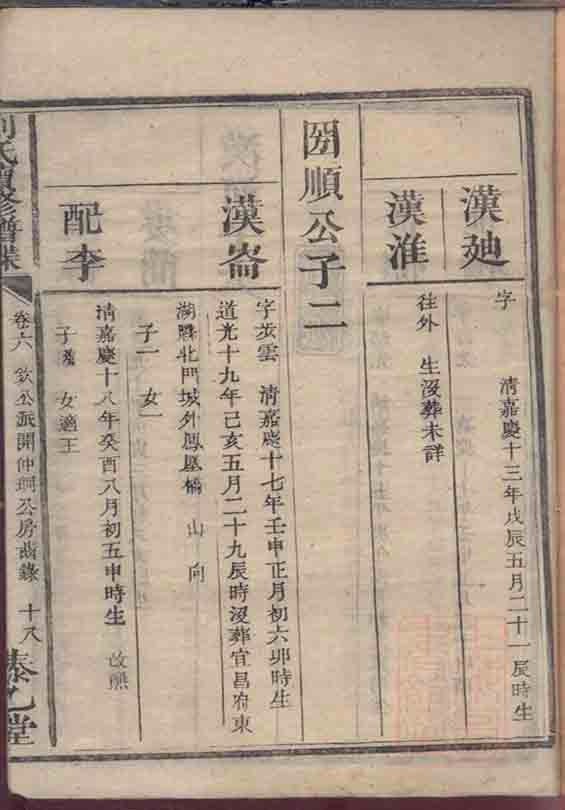 漢廸
字 清嘉慶十三年戊辰五月二十一辰時生
漢淮
往外 生沒葬未詳
圀順公子二
漢崙
字步雲 清嘉慶十七年壬申正月初六卯時生
道光十九年己亥五月二十九辰時沒葬宜昌府東
湖縣北門城外鳳凰橋 山 向
子一 女一
配李
清嘉慶十八年癸酉八月初五申時生 改熊
子 女適王
劉氏續修譜牒
卷六 欽公派開仲珂公房齒錄 十八
泰乙堂